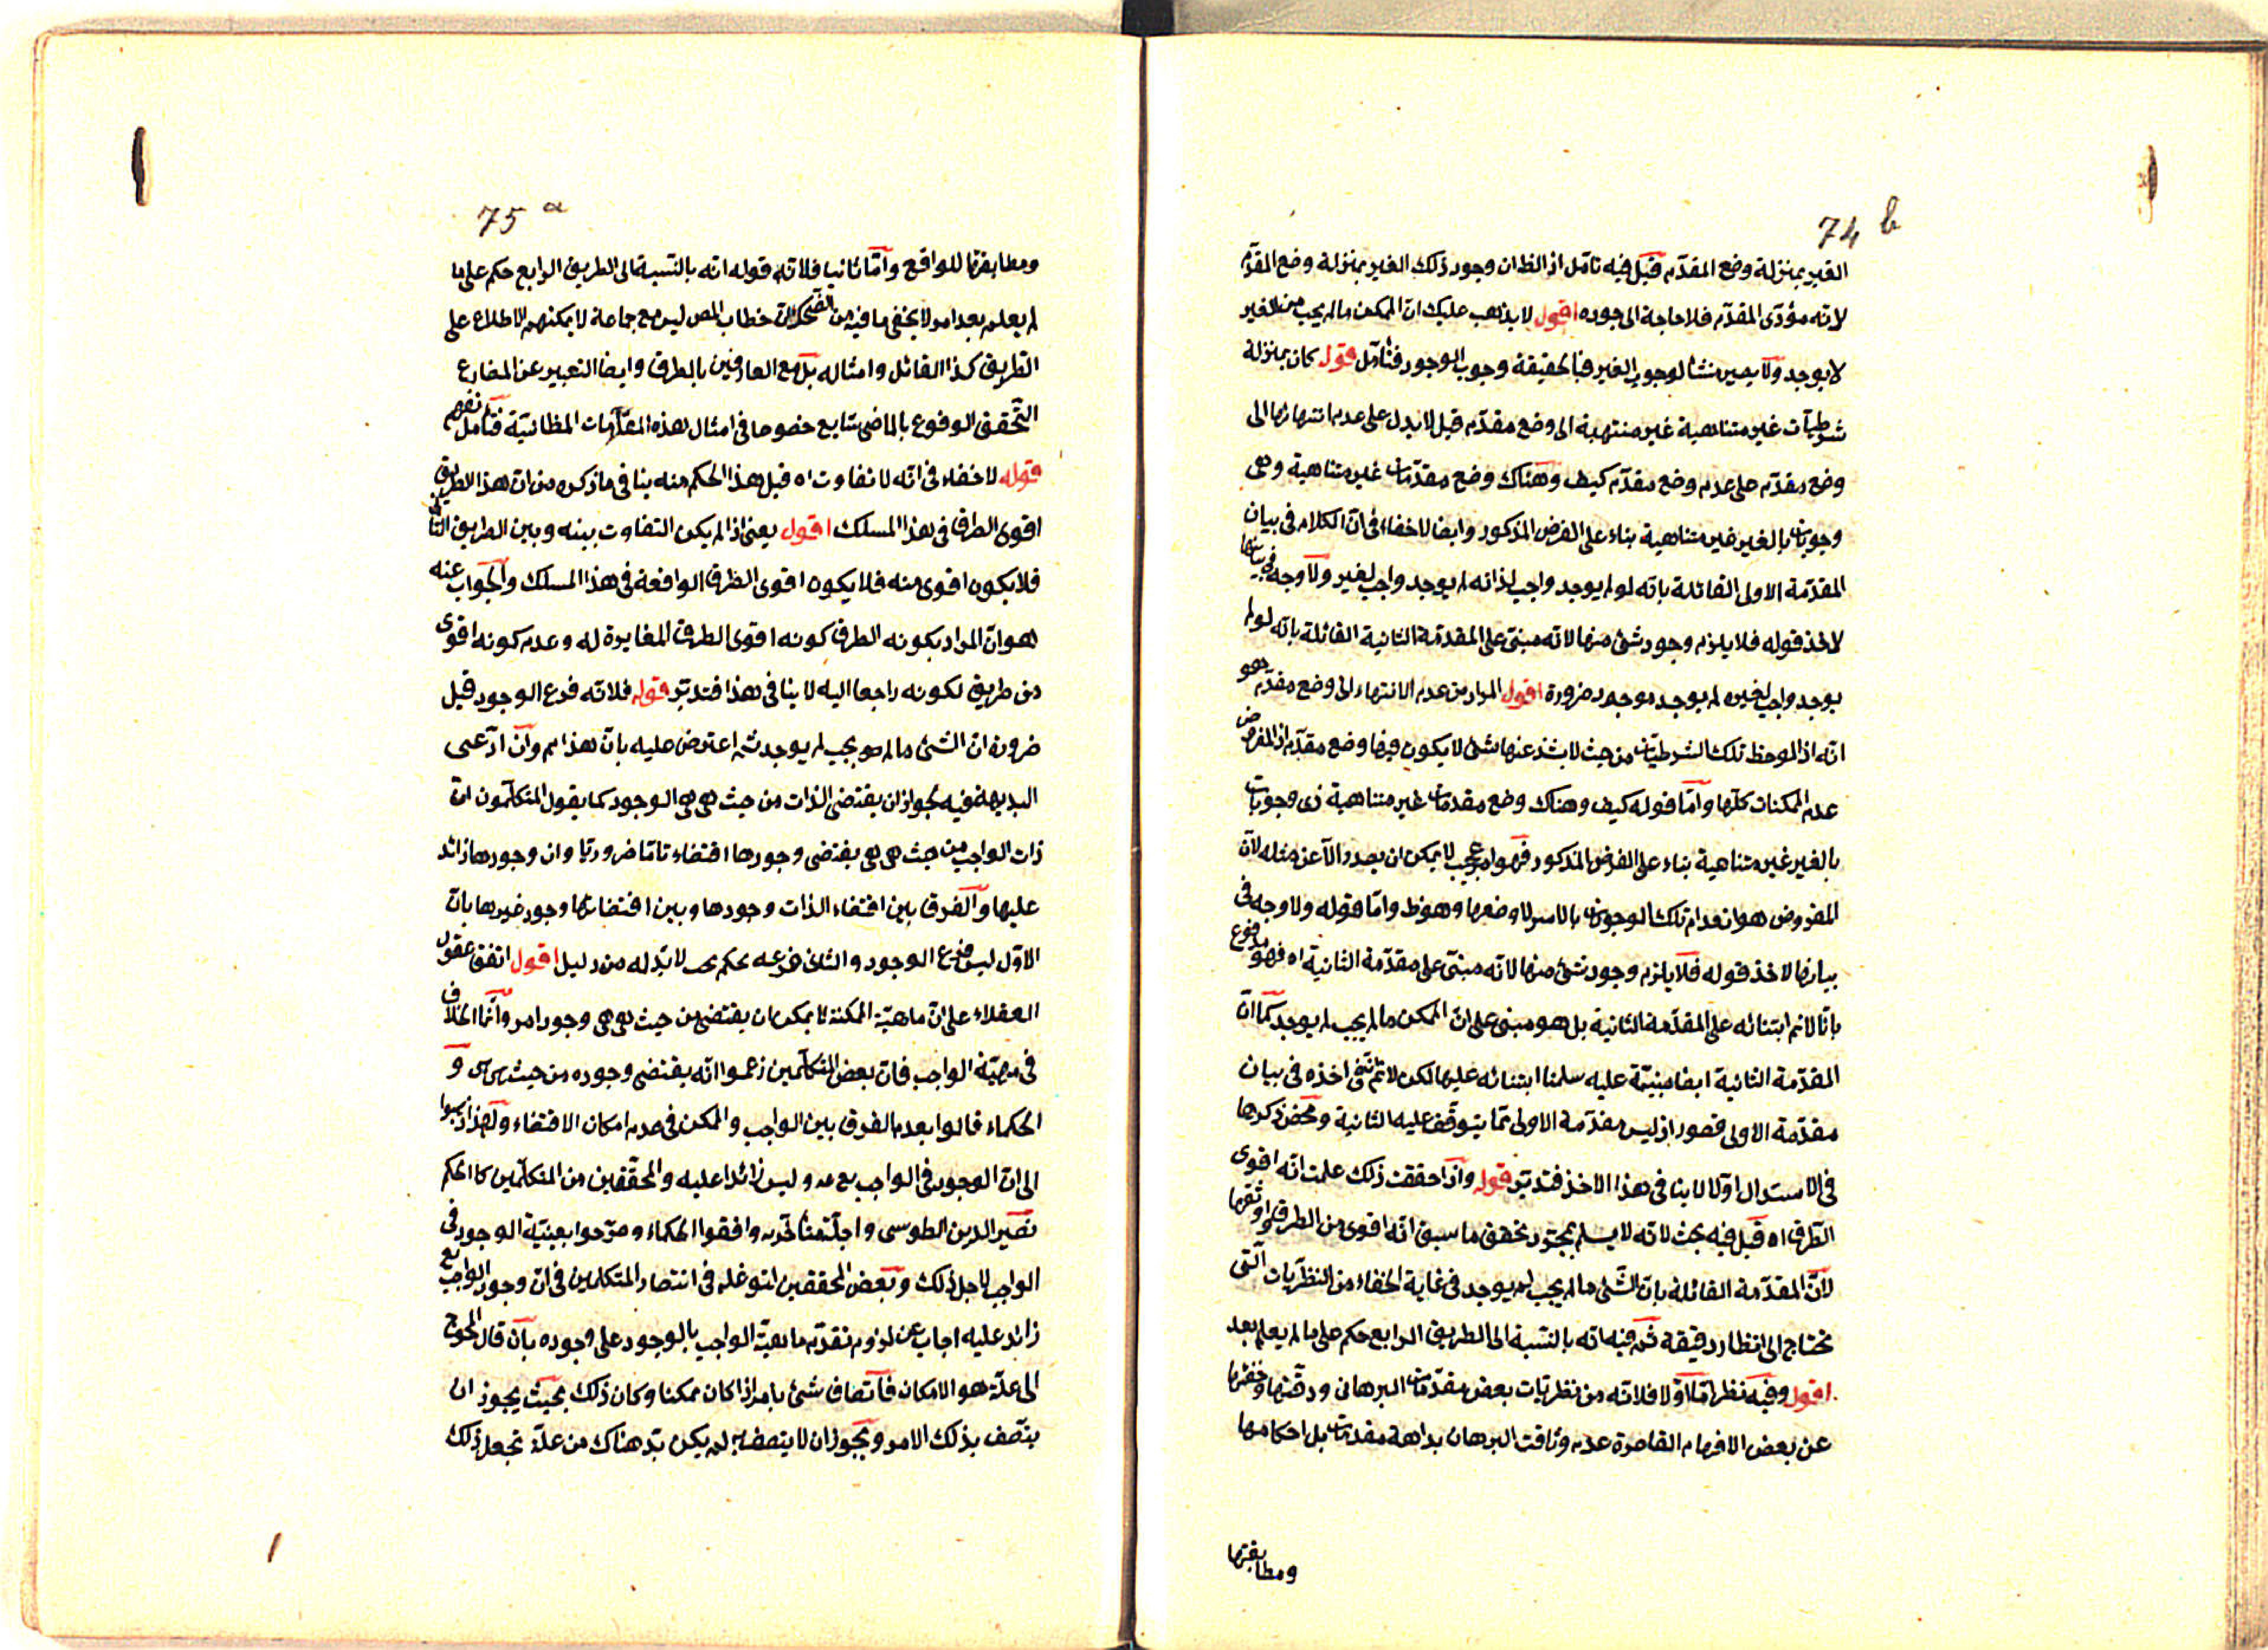 74 b
الغير بمنزلة وضع المقدّم قيل فيه تامّل اذ الظ ان وجود ذلك الغير بمنزلة وضع المقدّم
لانه مؤدّى المقدّم فلا حاجة الى جوده اقول لا يذهب عليك انّ الممكن ما لم يجب من الغير
لا يوجد ولا يصير منشأ لوجوب الغير فبالحقيقة وجوب الوجود فتأمّل قوله كان بمنزلة
شرطيّات غير متناهية غير منتهية الى وضع مقدّم قيل لا يدل على عدم انتهائها الى
وضع مقدّم على عدم وضع مقدّم كيف وهناك وضع مقدّمات غير متناهية وهى
وجوبات بالغير غير متناهية بناء على الفرض المذكور وايضا لا خفاء فى انّ الكلام فى بيان
المقدّمة الاولى القائلة بانّه لو لم يوجد واجب لذاته لم يوجد واجب لغير ولا وجه فى بيانها
لاخذ قوله فلا يلزم وجود شئ منها لانه مبنىّ على المقدّمة الثانية القائلة بانّه لو لم
يوجد واجب لغيره لم يوجد موجود ضرورة اقول المراد من عدم الانتهاء الى وضع مقدّم هو
انّه اذا لوحظ تلك الشرطيّات من حيث لا يشذ عنها شئ لا يكون فيها وضع مقدّم اذ المفروض
عدم الممكنات كلّها وامّا قوله كيف وهناك وضع مقدمات غير متناهية ذى وجوبات
بالغير غير متناهية بناء على الفرض المذكور فهو امر عجيب لا يمكن ان يصدر الّا عن مثله لانّ
المفروض هو انعدام تلك الوجوبات بالاسر لا وضعها وهو ظ وامّا قوله ولا وجه فى
بيانها لاخذ قوله فلا يلزم وجود شئ منها لانه مبنىّ على مقدّمة الثانية اه فهو مدفوع
بانّا لا نم ابتنائه على المقدّمة الثانية بل هو مبنى على انّ الممكن ما لم يجب لم يوجد كما انّ
المقدّمة الثانية ايضا مبنيّة عليه سلمنا ابتنائه عليها لكن لا نم تحقّق اخذه فى بيان
مقدّمة الاولى قصور اذ ليس مقدّمة الاولى ممّا يتوقّف عليه الثانية ومحض ذكرها
فى الاستدلال اوّلا لا ينافى هذا الاخذ فتدبّر قوله واذا حققت ذلك علمت انّه اقوى
الطرق اه قيل فيه بحث لانه لا يسلم بمجرّد تحقق ما سبق انّه اقوى من الطرق واوثقها
لانّ المقدّمة القائلة بانّ الشئ ما لم يجب لم يوجد فى غاية الخفاء من النظريّات الّتى
تحتاج الى انظار دقيقة ثم فيه انه بالنسبة الى الطريق الرابع حكم على ما لم يعلم بعد
اقول وفيه نظر امّا اوّلا فلانّه من نظريّات بعض مقدّمات البرهان ودقّتها وخفائها
عن بعض الافهام القاصرة عدم وثاقت البرهان بداهة مقدمات بل احكامها
ومطابقتها
75 a
ومطابقتها للواقع وامّا ثانيا فلانّه قوله انه بالنسبة الى الطريق الرابع حكم على ما
لم يعلم بعد امر لا يخفى ما فيه من الضحك لانّ خطاب المص ليس مع جماعة لا يمكنهم الاطلاع على
الطريق كذا القائل وامثاله بل مع العارفين بالطرق وايضا التعبير عن المضارع
التحقق الوقوع بالماضى شايع خصوصا فى امثال هذه المقامات الخطابيّة فتأمل تفهم
قوله لا خفاء فى انّه لا تفاوت اه قيل هذا الحكم منه ينافى ما ذكره من انّ هذا الطريق
اقوى الطرق فى هذا المسلك اقول يعنى اذا لم يكن التفاوت بينه وبين الطريق الثانى
فلا يكون اقوى منه فلا يكون اقوى الطرق الواقعة فى هذا المسلك والجواب عنه
هو انّ المراد بكونه الطرق كونه اقوى الطرق المغايرة له وعدم كونه اقوى
من طريق لكونه راجعا اليه لا ينافى هذا فتدبّر قوله فلانّه فرع الوجود قيل
ضرورة ان الشئ ما لم يجب لم يوجد ثم اعترض عليه بانّ هذا مم وان ادّعى
البديهة فيه لجواز ان يقتضى الذات من حيث هى هى الوجود كما يقول المتكلّمون انّ
ذات الواجب من حيث هى هى يقتضى وجودها اقتضاء تامّا ضروريّا وان وجودها زائد
عليها والفرق بين اقتضاء الذات وجودها وبين اقتضائها وجود غيرها بانّ
الاوّل ليس فرع الوجود والثانى فرعه تحكم بحت لا بدّ له من دليل اقول اتفق عقول
العقلاء على انّ ماهيّة الممكنة لا يمكن ان يقتضى من حيث هى هى وجود امر وانّما الخلاف
فى مهيّة الواجب فانّ بعض المتكلّمين زعموا انّه يقتضى وجوده من حيث هى هى و
الحكماء قالوا بعدم الفرق بين الواجب والممكن فى عدم امكان الاقتضاء ولهذا ذهبوا
الى انّ الوجود فى الواجب تع عينه وليس زائدا عليه والمحقّقين من المتكلّمين كالحكم
نصير الدين الطوسى واجلّة متأخّريه وافقوا الحكماء وصرّحوا بعينيّة الوجود فى
الواجب لاجل ذلك وبعض المحققين لتوغله فى انتصار المتكلمين فى انّ وجود الواجب تع
زائد عليه اجاب عن لزوم تقدّم ماهيّة الواجب بالوجود على وجوده بان قال المحوج
الى علّة هو الامكان فاتّصاف شئ بامر اذا كان ممكنا وكان ذلك بحيث يجوز ان
يتّصف بذلك الامر ويجوز ان لا يتصف به لم يكن بدّ هناك من علّة تجعل ذلك